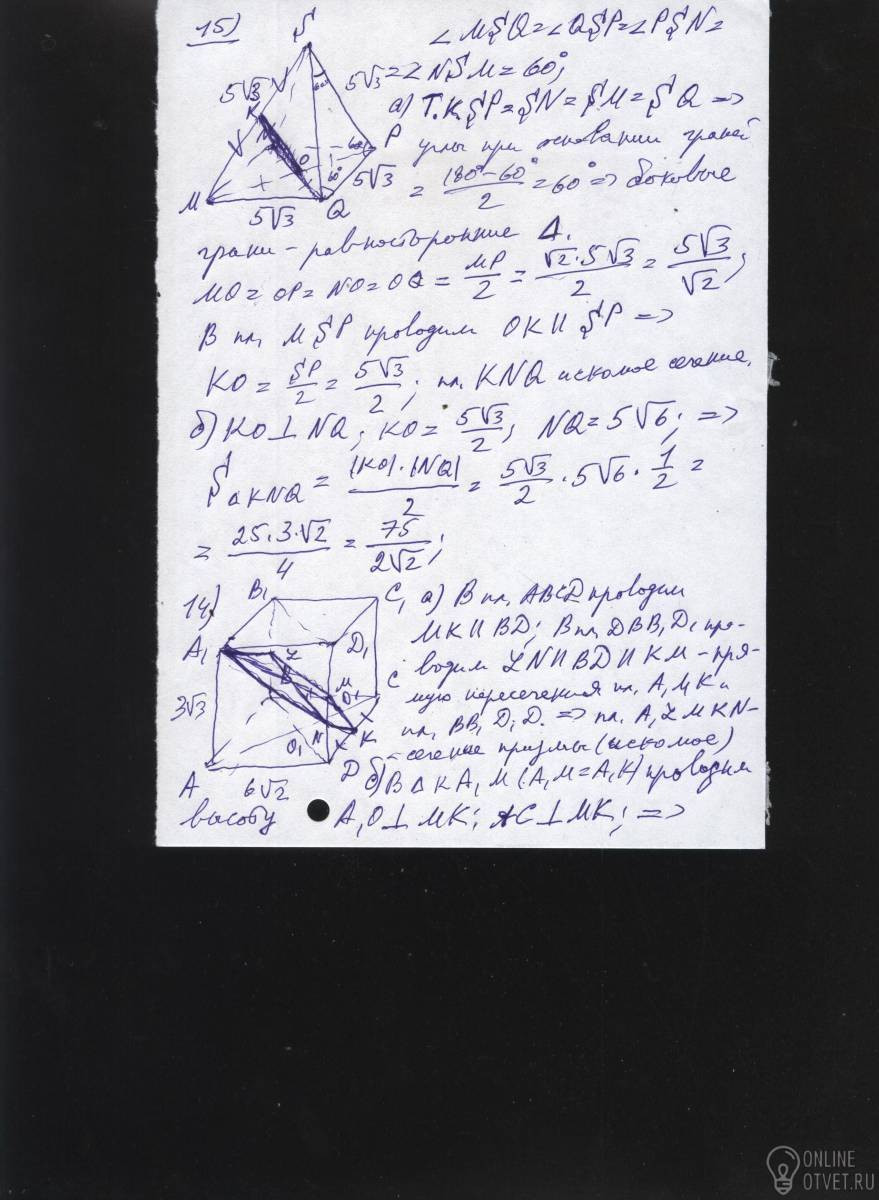 15)
S
∠MSQ=∠QSP=∠PSN=
=∠NSM=60°;
a) Т.к. SP=SN=SM=SQ =>
углы при основании граней
= (180°-60°)/2 = 60° => боковые
5√3
5√3
K
60°
N
O
60°
60°
P
5√3
M
5√3
Q
грани - равносторонние Δ.
MO = OP = NO = OQ = MP/2 = √2·5√3/2 = 5√3/√2;
В пл. MSP проводим OK || SP =>
KO = SP/2 = 5√3/2; пл. KNQ искомое сечение.
б) KO⊥NQ; KO = 5√3/2; NQ=5√6; =>
S ΔKNQ = |KO|·|NQ|/2 = 5√3/2 · 5√6 · 1/2 =
= 25·3·√2/4 = 75/2√2;
14)
B₁
C₁
A₁
D₁
L
B
M
C
O
3√3
O₁
N
K
A
6√2
D
а) В пл. ABCD проводим
MK || BD; В пл. DBB₁D₁ про-
водим LN || BD || KM - пря-
мую пересечения пл. A₁MK и
пл. BB₁D₁D. => пл. A₁LMKN-
- сечение призмы (искомое)
б) В Δ KA₁M (A₁M=A₁K) проводим
высоту A₁O⊥MK; AC⊥MK; =>
ONLINE
OTVET.RU